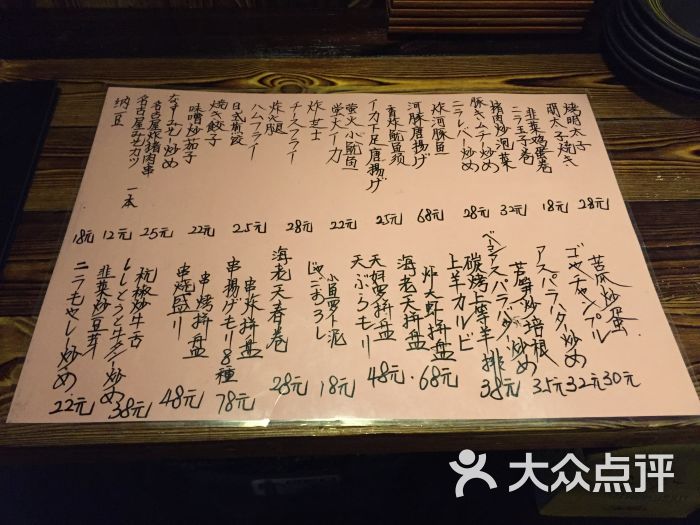 烤明太子
明太子焼き
28元
韮菜鸡蛋卷
ニラ玉子巻
18元
猪肉炒泡菜
豚キムチー炒め
32元
ニラレバー炒め
28元
炸河豚鱼
河豚唐揚げ
68元
香炸鱿鱼须
イカ下足唐揚げ
25元
萤火小鱿鱼
蛍火イーカ
22元
炸芝士
チーズフライ
28元
炸火腿
ハムフライ
25元
日式煎饺
焼き餃子
22元
味噌炒茄子
なすみそ炒め
25元
名古屋炸猪肉串
名古屋みそカツ 一本
12元
納豆
18元
苦瓜炒蛋
ゴーヤーチャンプル
30元
アスパラバター炒め
32元
芦笋炒培根
ベーコンアスパラバター炒め
35元
碳烤上等羊排
上羊カルビ
38元
炸大虾拼盘
海老天拼盘
68元
天妇罗拼盘
天ぷらモリ
48元
じゃこおろし
18元
海老天春卷
28元
串炸拼盘
串揚げモリ8種
78元
串烤拼盘
串焼盛り
48元
杭椒炒牛舌
ししとうと牛タン炒め
38元
韮菜炒豆芽
ニラモヤシー炒め
22元
大众点评